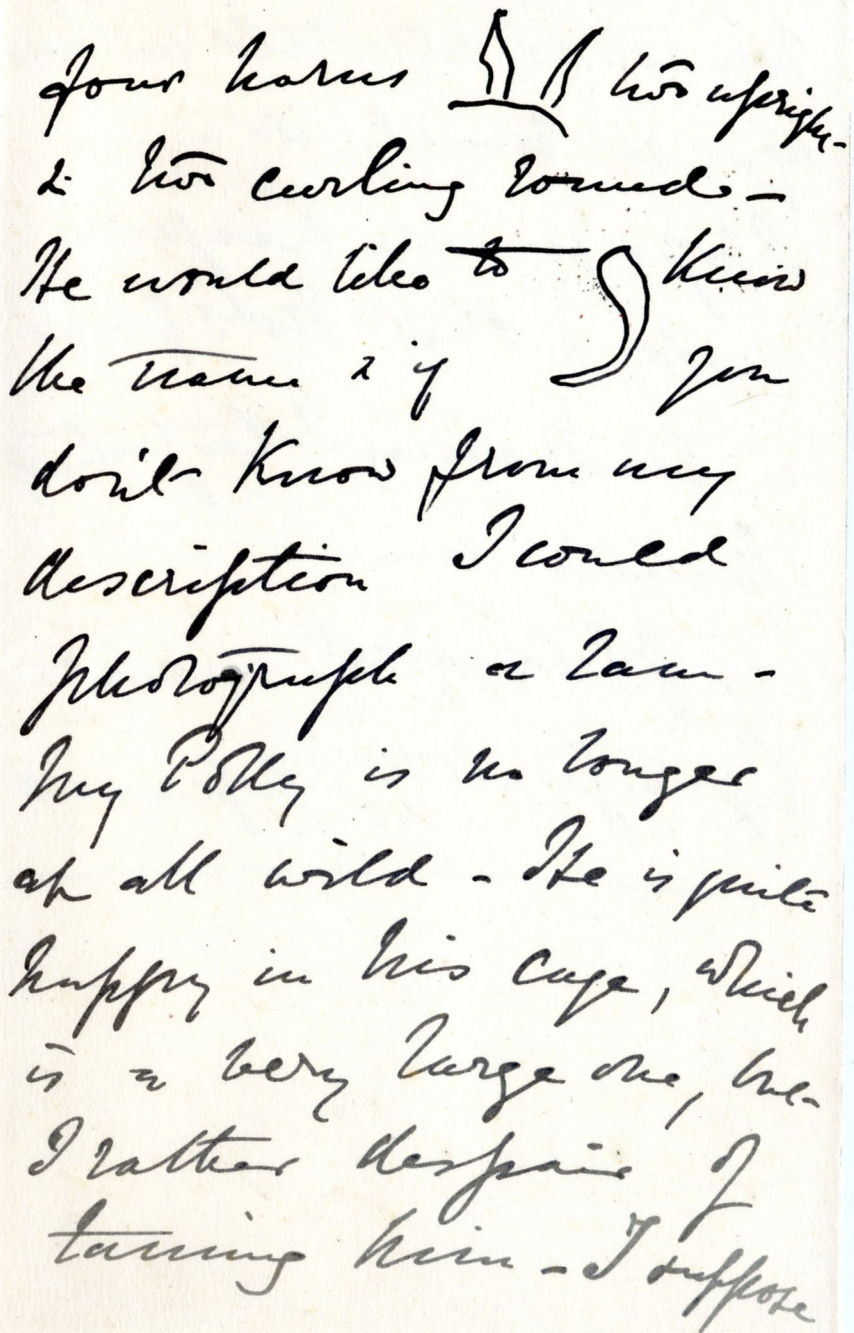 four horns two upright
& two curling round. —
He would like to know
the name & if you
don't know from my
description I could
photograph a ram -
My Polly is no longer
at all wild - He is quite
happy in his cage, which
is a very large one, but
I rather despair of
taming him - I suppose